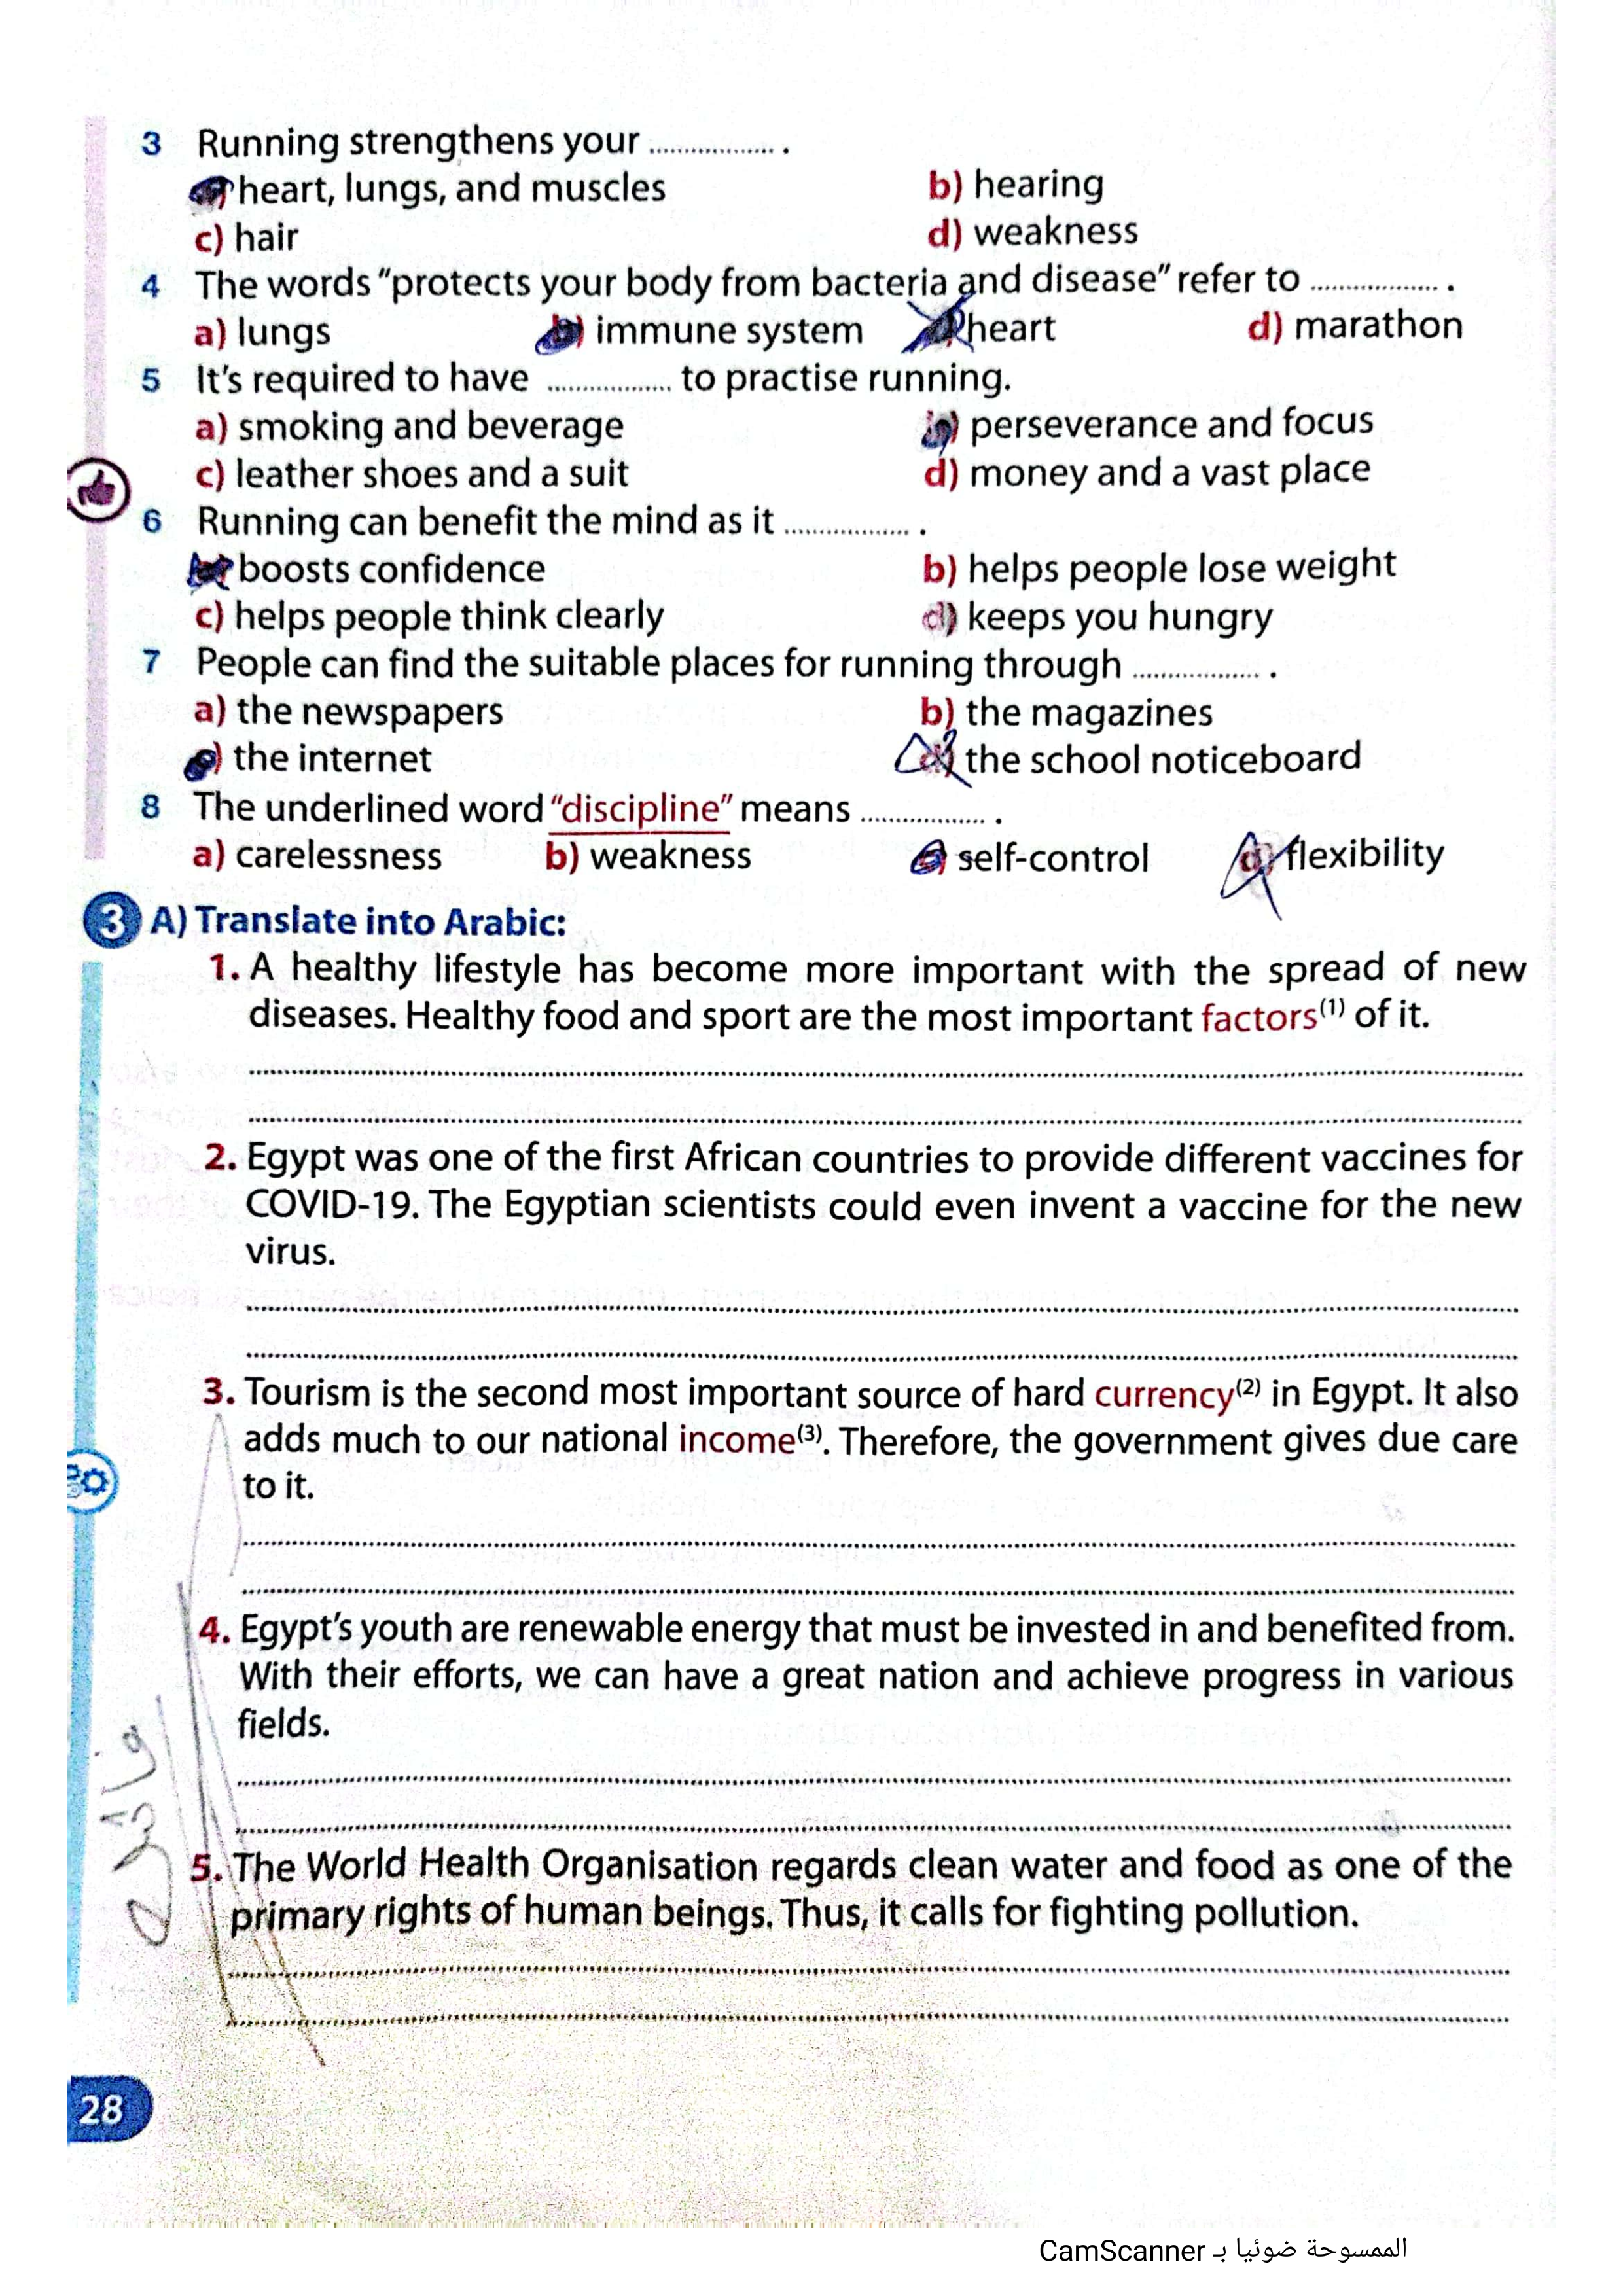 3 Running strengthens your .................. .
a) heart, lungs, and muscles b) hearing
c) hair d) weakness
4 The words "protects your body from bacteria and disease" refer to .................. .
a) lungs b) immune system c) heart d) marathon
5 It's required to have .................. to practise running.
a) smoking and beverage b) perseverance and focus
c) leather shoes and a suit d) money and a vast place
6 Running can benefit the mind as it .................. .
a) boosts confidence b) helps people lose weight
c) helps people think clearly d) keeps you hungry
7 People can find the suitable places for running through .................. .
a) the newspapers b) the magazines
c) the internet d) the school noticeboard
8 The underlined word "discipline" means .................. .
a) carelessness b) weakness c) self-control d) flexibility
3 A) Translate into Arabic:
1. A healthy lifestyle has become more important with the spread of new
diseases. Healthy food and sport are the most important factors(1) of it.
2. Egypt was one of the first African countries to provide different vaccines for
COVID-19. The Egyptian scientists could even invent a vaccine for the new
virus.
3. Tourism is the second most important source of hard currency(2) in Egypt. It also
adds much to our national income(3). Therefore, the government gives due care
to it.
4. Egypt's youth are renewable energy that must be invested in and benefited from.
With their efforts, we can have a great nation and achieve progress in various
fields.
5. The World Health Organisation regards clean water and food as one of the
primary rights of human beings. Thus, it calls for fighting pollution.
28
الممسوحة ضوئيا بـ CamScanner